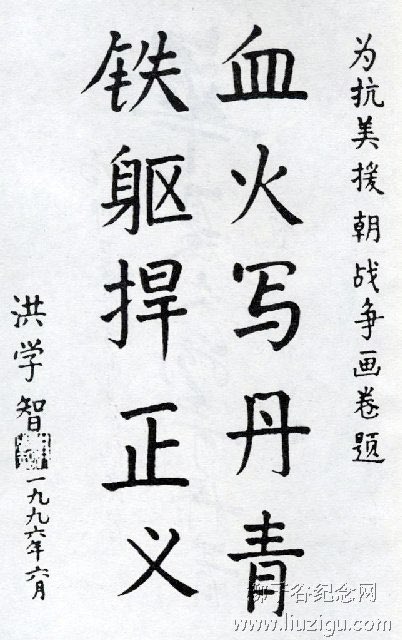 为抗美援朝战争画卷题
血火写丹青
铁躯捍正义
洪学智
一九九六年六月
柳子谷纪念网
www.liuzigu.com